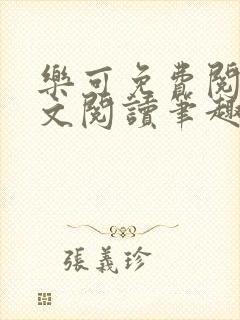 樂可免費閱
文閱讀筆趣
張義珍